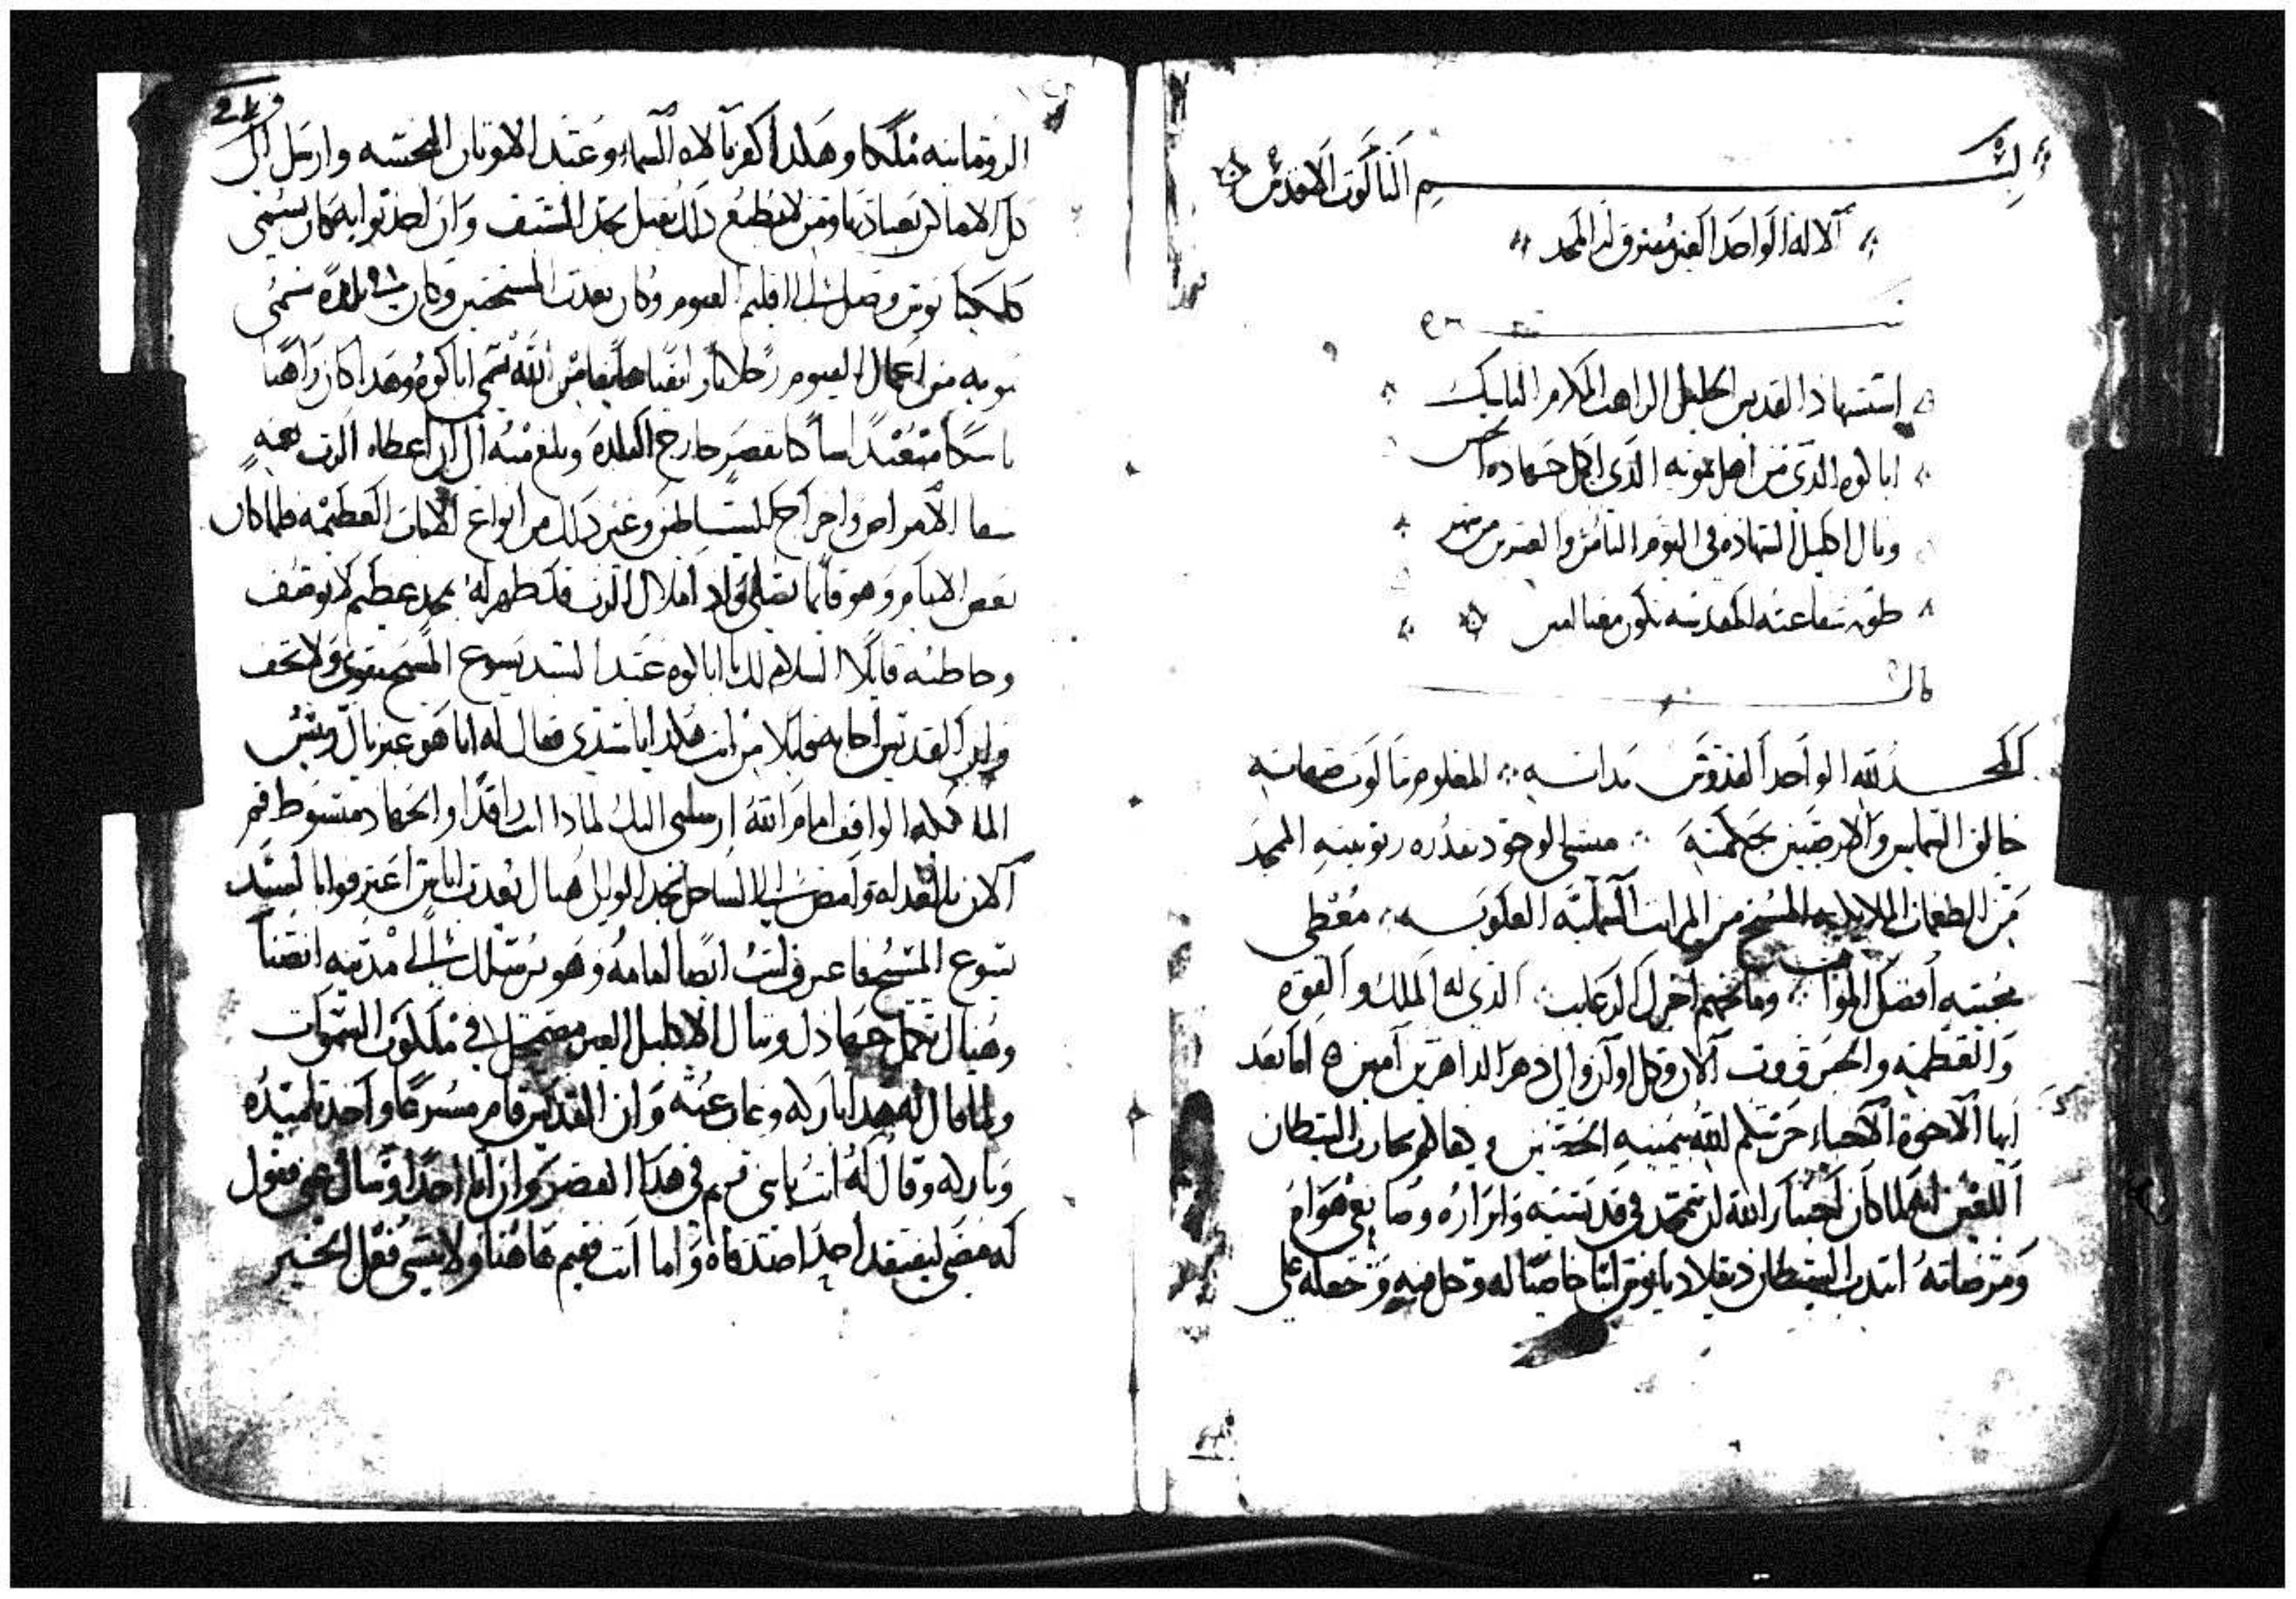 بسم الثالوث الاقدس
الاله الواحد الغير مفترق له المجد
استشهاد القديس الجليل الراهب الناسك
اباكوه الذى من اهل بمويه الذى اكمل جهاده الحسن
ونال اكليل الشهاده فى اليوم الثامن والعشرين من شهر
طوبه شفاعته المقدسه تكون معنا امين
قال
الحمد لله الواحد القدوس بذاته المعلوم ثالوث صفاته
خالق السمايين والارضيين بحكمته منشى الوجود بقدره ربوبيته الممجد
من الطغمات الملايكيه المسبح من المراتب السمايه العلويه معطى
محبيه افضل المواهب ومانحهم اجزل الرغايب الذى له الملك والقوه
والعظمه والجبروت الان وكل اوان والى دهر الداهرين امين اما بعد
ايها الاخوة الاحباء حرسكم الله بيمينه الحصين وكفاكم محاربات الشيطان
اللعين انه لما كان اختيار الله ان يتمجد فى قديسيه وابراره وصانعى هواه
ومرضاته ابتدا الشيطان دقلاديانوس اناء خاصا له وحل فيه وجعله على
الرومانيه ملكا وهكذا كفر بالاه السماء وعبد الاوثان النجسه وارسل الى
كل الاماكن بعبادتها ومن لا يطيع ذلك يقتل بحد السيف وان اضطرابه كان يسمى
كلكيانوس وصل الى اقليم الفيوم وكان يعذب المسيحيين وكان فى بلده تسمى
بمويه من اعمال الفيوم رجلا بارا تقيا خايفا من الله يسمى اباكوه وهذا كان راهبا
ناسكا متعبدا ساكنا بقصر خارج البلده وبلغ منه الى ان اعطاه الرب موهبة
شفا الامراض واخراج الشياطين وغير ذلك من انواع الايات العظيمه فلما كان
بعض الايام وهو قايما يصلى واذ املاك الرب قد ظهر له بمجد عظيم لا يوصف
وخاطبه قايلا السلام لك يا اباكوه عبد السيد يسوع المسيح تقوى ولا تخف
وان القديس اجابه قايلا من انت هكذا يا سيدى فقال له انا هو غبريال رييس
الملايكه الواقف امام الله ارسلنى اليك لماذا انت راقدا والجهاد مبسوط قم
الان بالغداه وامض الى الساحل تجد الوالى هناك يعذب اناس اعترفوا بالسيد
يسوع المسيح فاعترف انت ايضا امامه وهو يرسلك الى مدينه انصنا
وهناك تكمل جهادك وتنال الاكليل الغير مضمحل فى ملكوت السموات
ولما قال له هذا باركه وغاب عنه وان القديس قام مسرعا واخذ تلميذه
وباركه وقال له انت يا بنى تقيم فى هذا القصر وان اتا احدا وسال عنى فقول
له مضى ليفتقد احدا اصدقاه واما انت فقيم هاهنا ولا تنسى فعل الخير